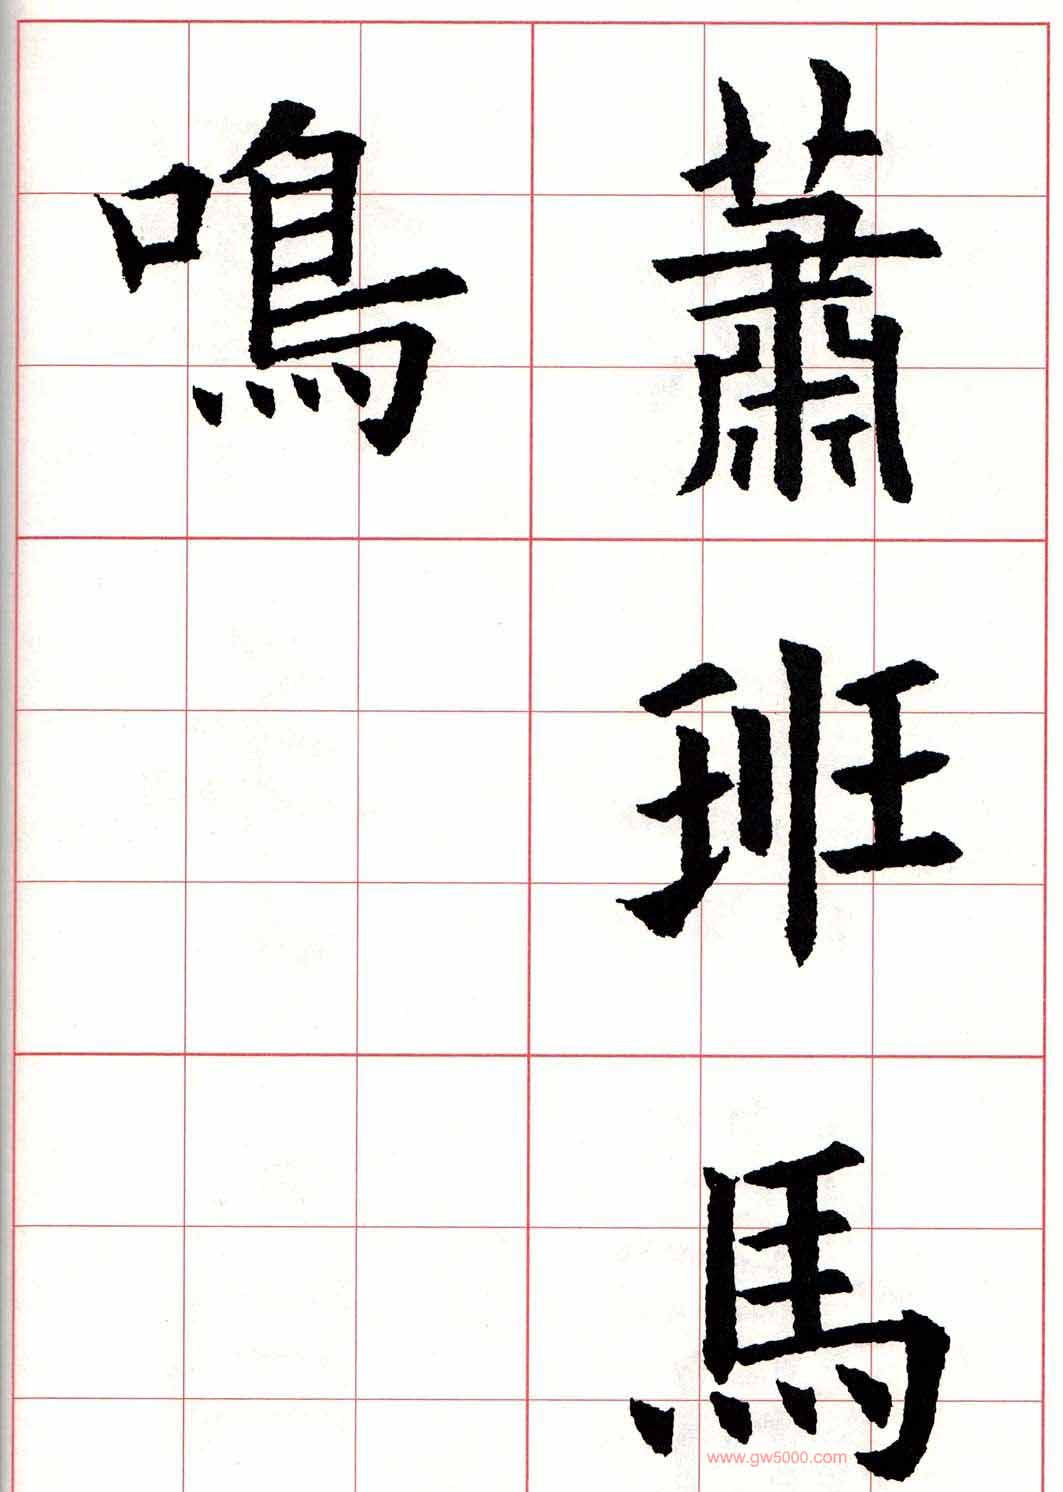 蕭班馬
鳴
www.gw5000.com